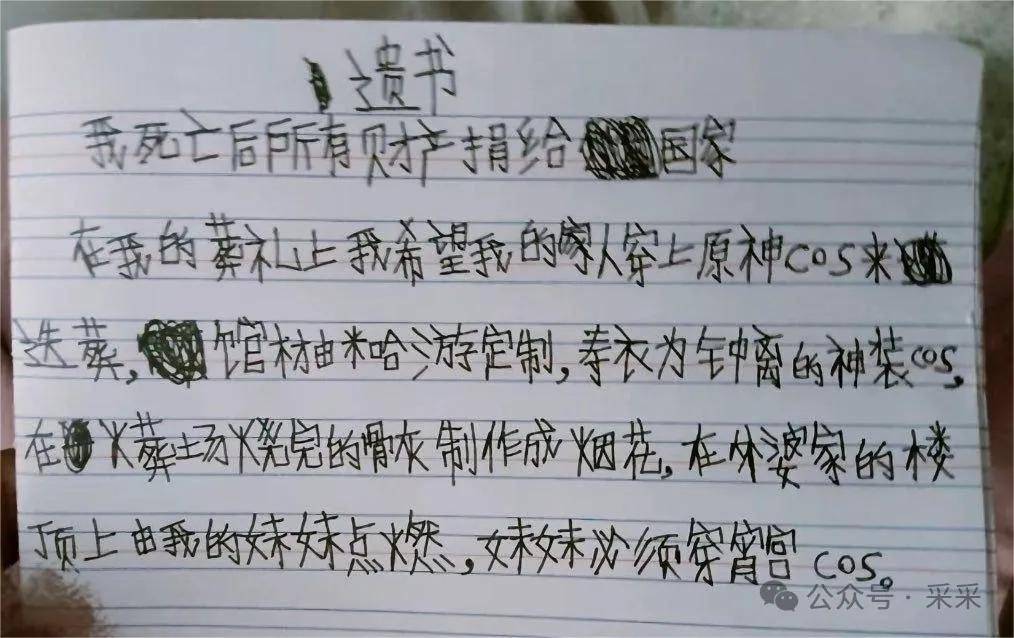 遗书
我死亡后所有财产捐给国家
在我的葬礼上我希望我的家人穿上原神cos来
送葬,馆材由米哈游定制,寿衣为钟离的神装cos,
在火葬场火烧完的骨灰制作成烟花,在外婆家的楼
顶上由我的妹妹点燃,妹妹必须穿宵宫cos。
公众号·采采